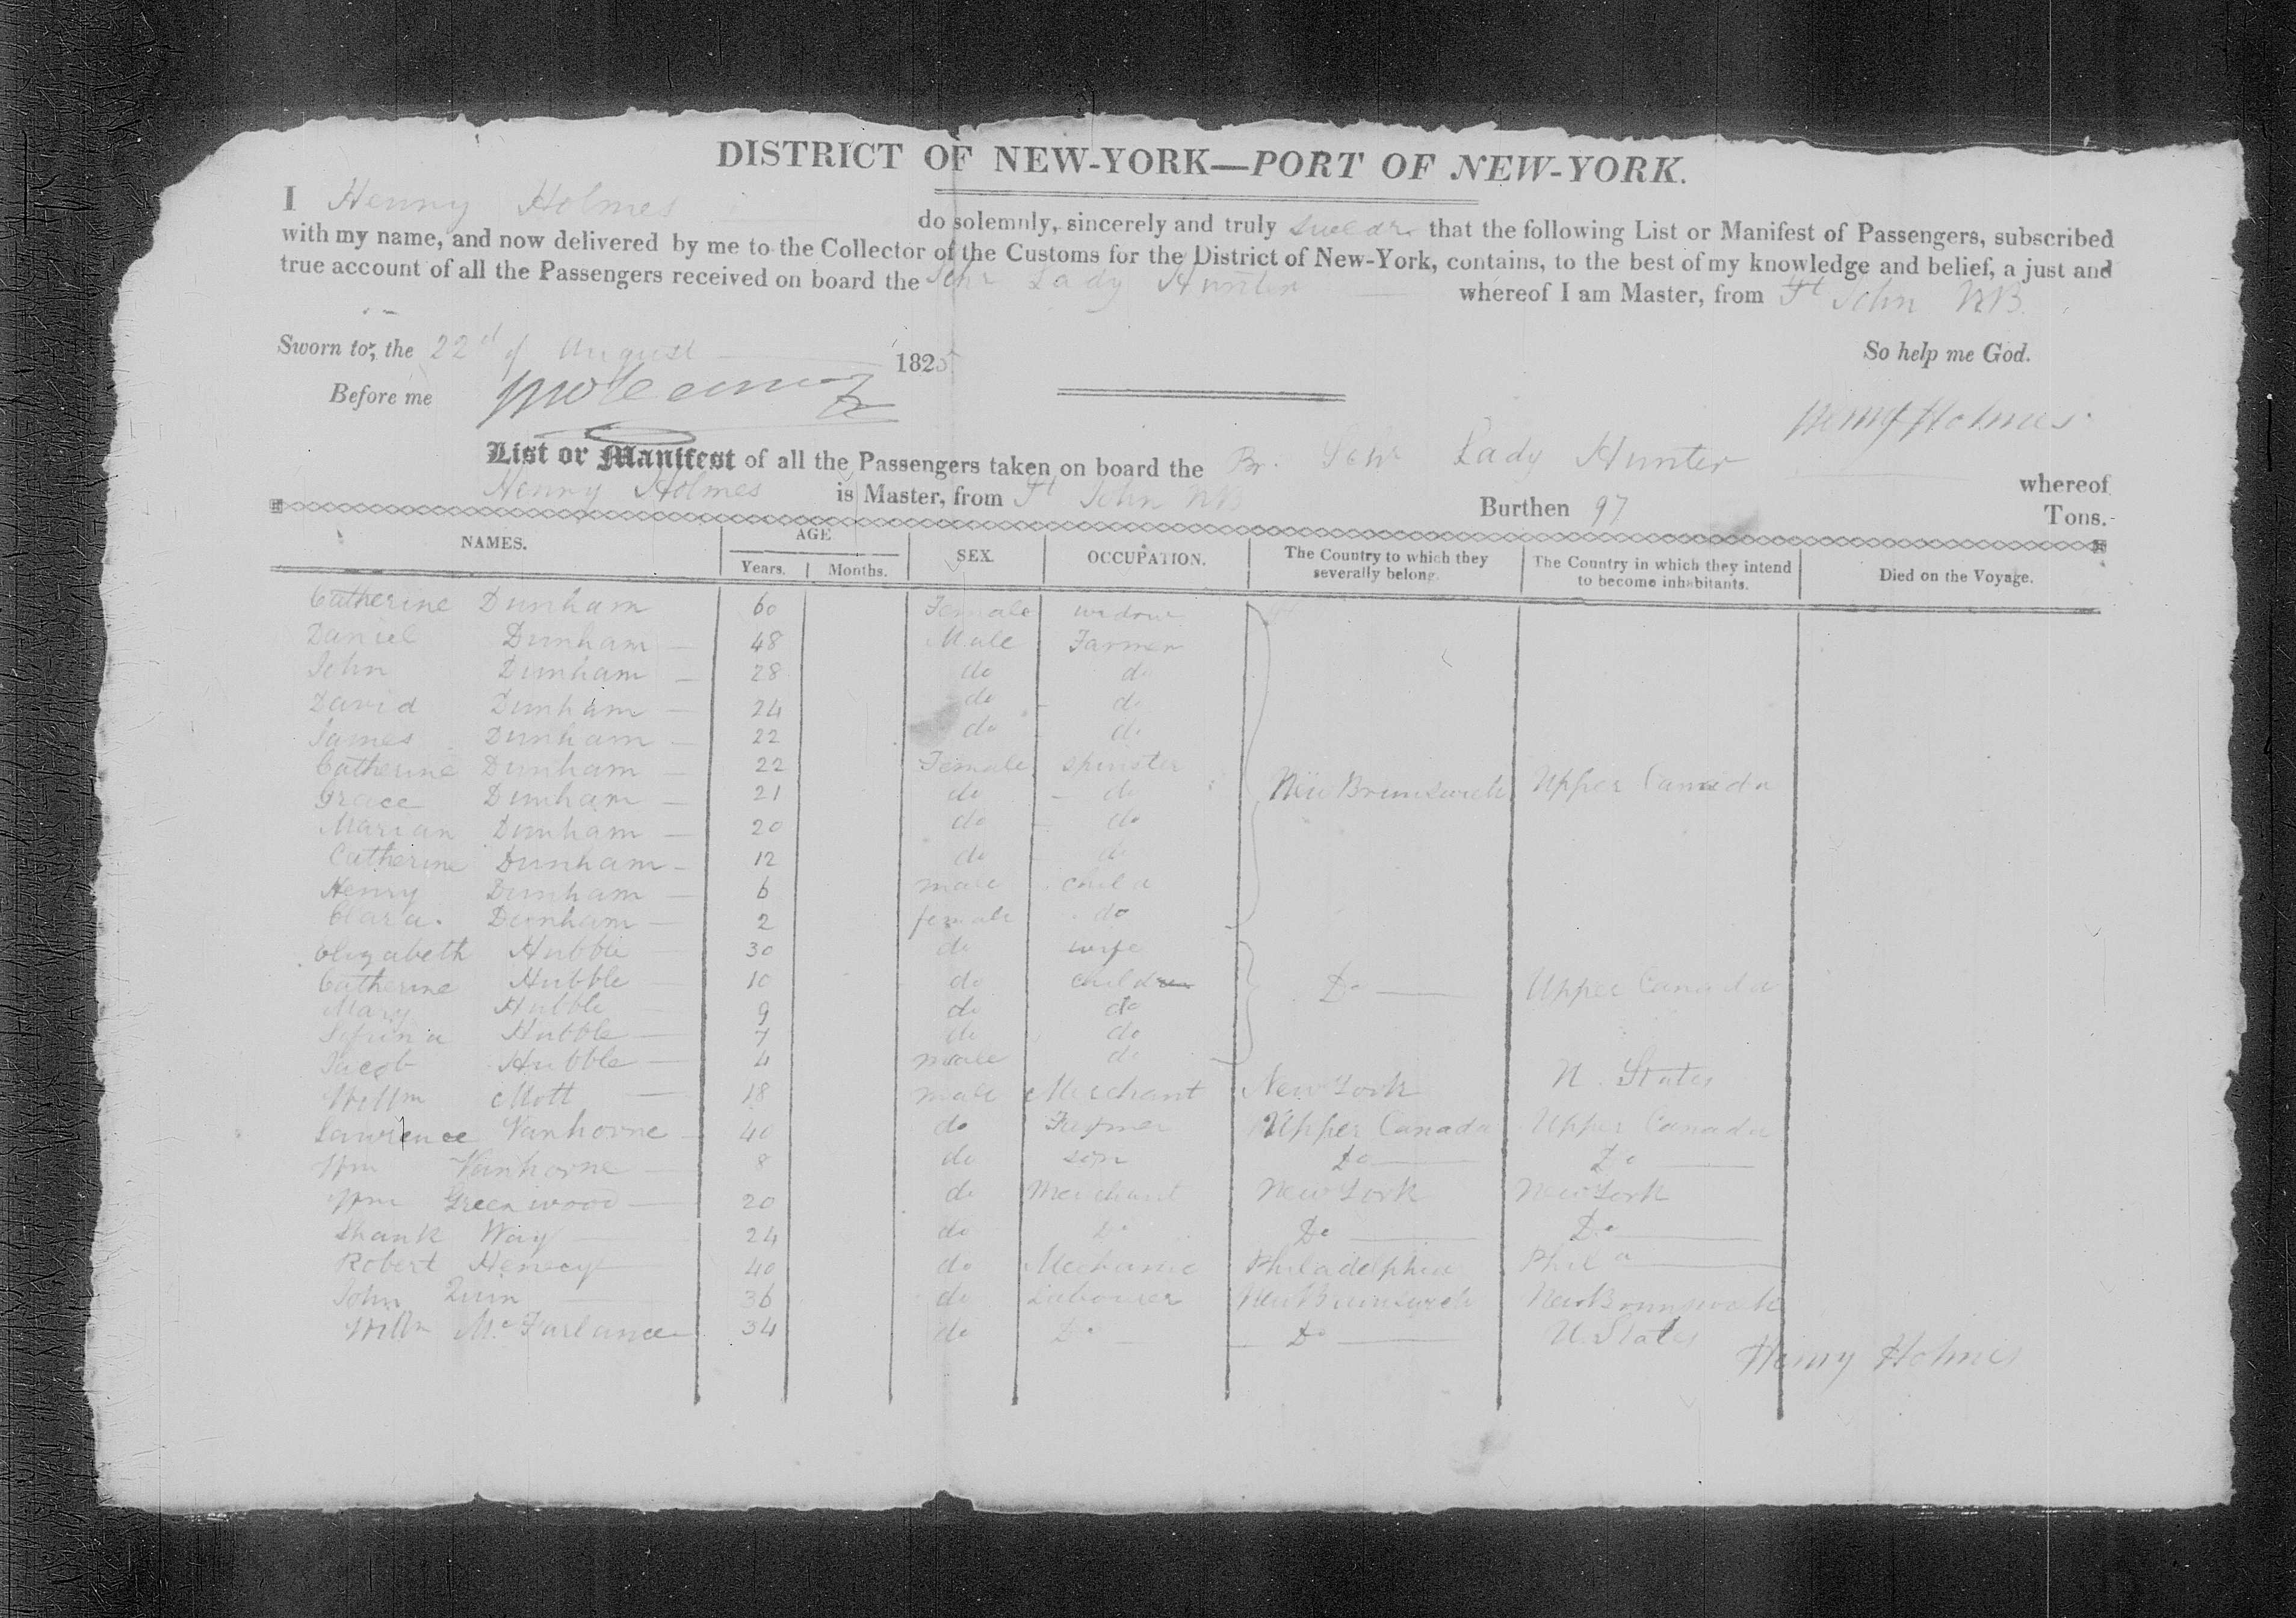 DISTRICT OF NEW-YORK—PORT OF NEW-YORK.
I Henry Holmes do solemnly, sincerely and truly swear that the following List or Manifest of Passengers, subscribed
with my name, and now delivered by me to the Collector of the Customs for the District of New-York, contains, to the best of my knowledge and belief, a just and
true account of all the Passengers received on board the Schr Lady Hunter whereof I am Master, from St John NB.
So help me God.
Sworn to, the 22d of August 1825
Before me
Henry Holmes
List or Manifest of all the Passengers taken on board the Br. Schr Lady Hunter whereof
Henry Holmes is Master, from St John NB Burthen 97 Tons.
NAMES. AGE Years. Months. SEX. OCCUPATION. The Country to which they severally belong. The Country in which they intend to become inhabitants. Died on the Voyage.
Catherine Dunham 60 Female widow
Daniel Dunham 48 Male Farmer
John Dunham 28 do do
David Dunham 24 do do
James Dunham 22 do do
Catherine Dunham 22 Female spinster
Grace Dunham 21 do do New Brunswick Upper Canada
Marian Dunham 20 do do
Catherine Dunham 12 do do
Henry Dunham 6 male child
Clara Dunham 2 female do
Elizabeth Hubble 30 do wife
Catherine Hubble 10 do child Do Upper Canada
Mary Hubble 9 do do
Hubble 7 do do
Jacob Hubble 4 male do
Willm Mott 18 male Merchant New York U. States
Lawrence Vanhorne 40 do Upper Canada Upper Canada
Wm Vanhorne 8 do son Do Do
Wm Greenwood 20 do Merchant New York New York
Shank Way 24 do Do Do Do
Robert Henecy 40 do Mechanic Philadelphia Phila
John Quin 36 do Labourer New Brunswick New Brunswick
Willm McFarlance 34 do Do Do U. States
Henry Holmes